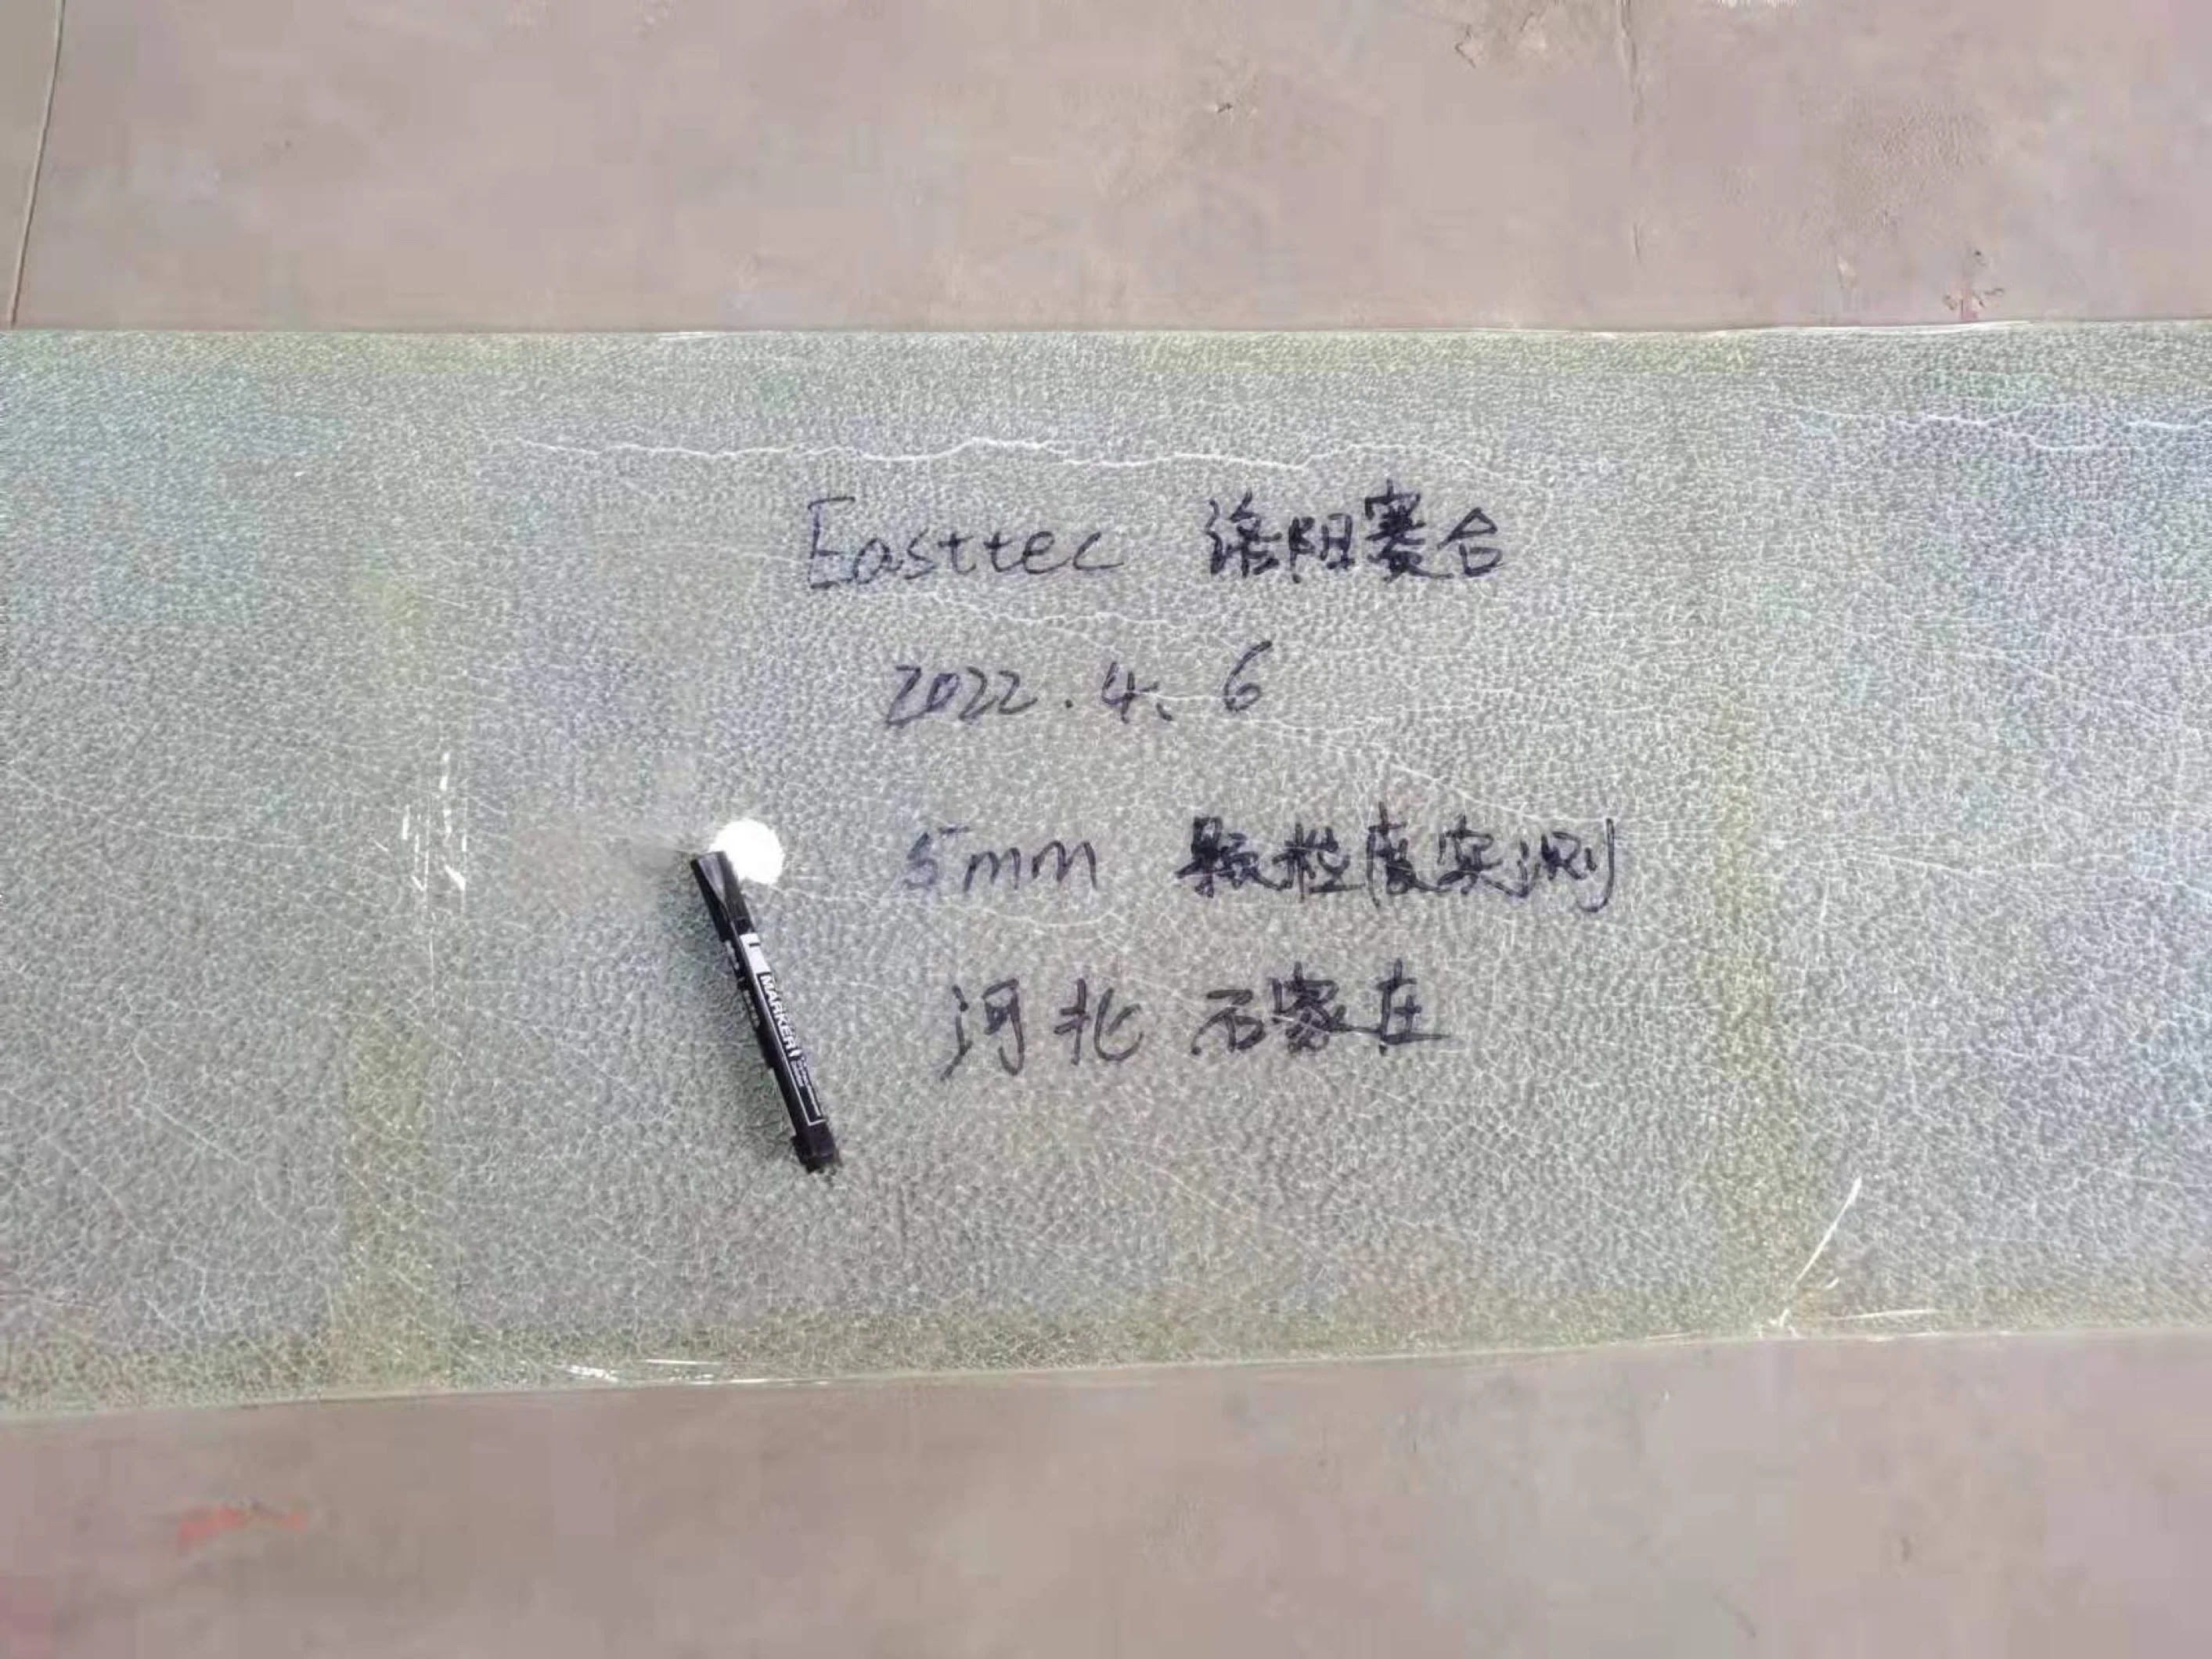 Easttec 洛阳赛合
2022.4、6
5mm 颗粒度实测
河北 石家庄
MARKER